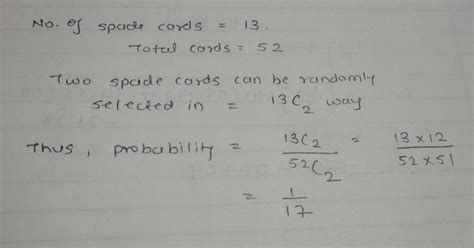 No. of spade cards = 13.
Total cards = 52
Two spade cards can be randomly
selected in = 13C₂ way
Thus, probability = 13C₂/52C₂ = 13×12/52×51
= 1/17